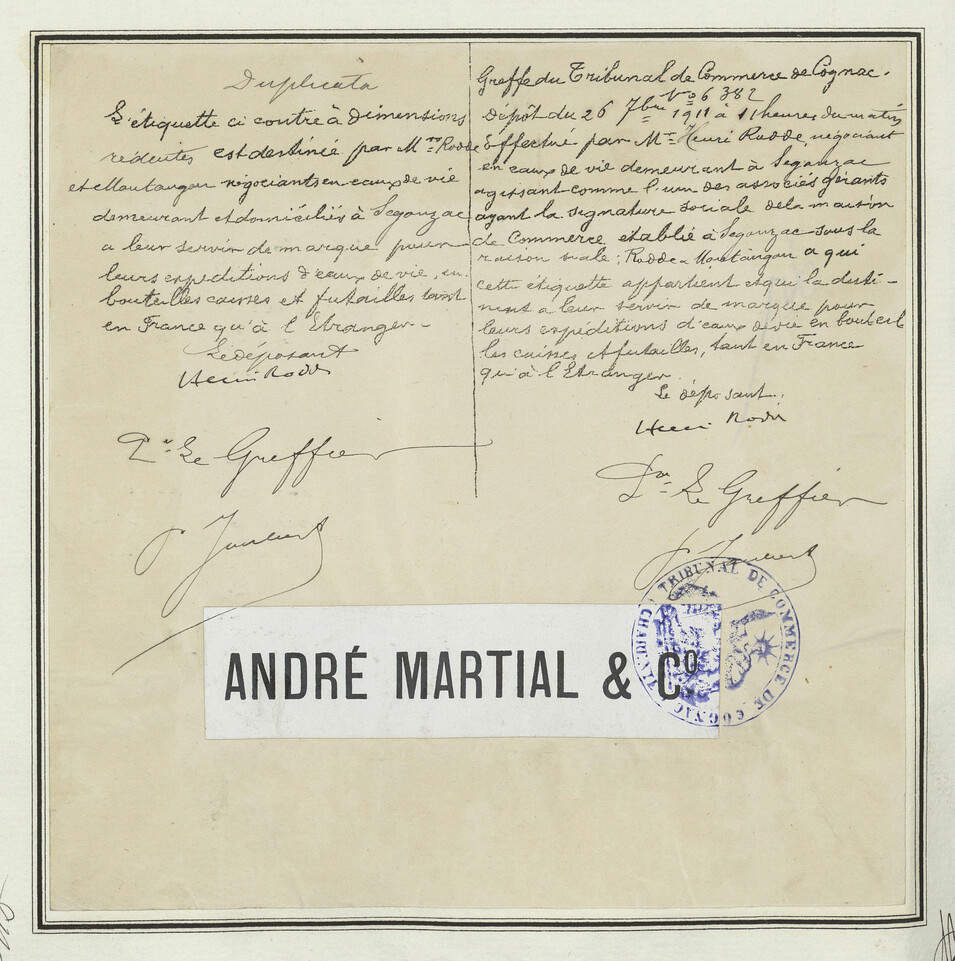 Duplicata
L'étiquette ci contre à dimensions
réduites est destinée par Mrs Rodde
et Montaugon négociants en eaux de vie
demeurant et domiciliés à Segonzac
a leur servir de marque pour
leurs expéditions d'eaux de vie, en
bouteilles caisses et futailles tant
en France qu'à l'Etranger -
Le déposant
Henri Rodde
Pr Le Greffier
Greffe du Tribunal de Commerce de Cognac.
No 6382
Dépôt du 26 7bre 1911 à 11 heures du matin
Effectué par Mr Henri Rodde, négociant
en eaux de vie demeurant à Segonzac
agissant comme l'un des associés gérants
ayant la signature sociale de la maison
de Commerce etablie à Segonzac sous la
raison sociale; Rodde & Montaugon a qui
cette étiquette appartient et qui la desti-
nent a leur servir de marque pour
leurs expéditions d'eaux de vie en bouteil
les caisses et futailles, tant en France
qu'à l'Etranger
Le déposant.
Henri Rodde
Pr Le Greffier
ANDRÉ MARTIAL & Co
TRIBUNAL DE COMMERCE DE COGNAC